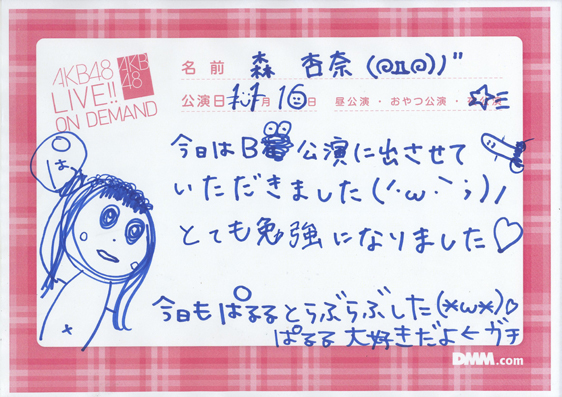 AKB48
LIVE!!
ON DEMAND
AKB
48
名前 森 杏奈
公演日 11月 16日 昼公演・おやつ公演・夜公演
は
今日はB 公演に出させて
いただきました(´･ω･`;)ﾉ
とても勉強になりました♡
今日もぱるるとらぶらぶした(*ω*)♡
ぱるる大好きだよ←ガチ
DMM.com